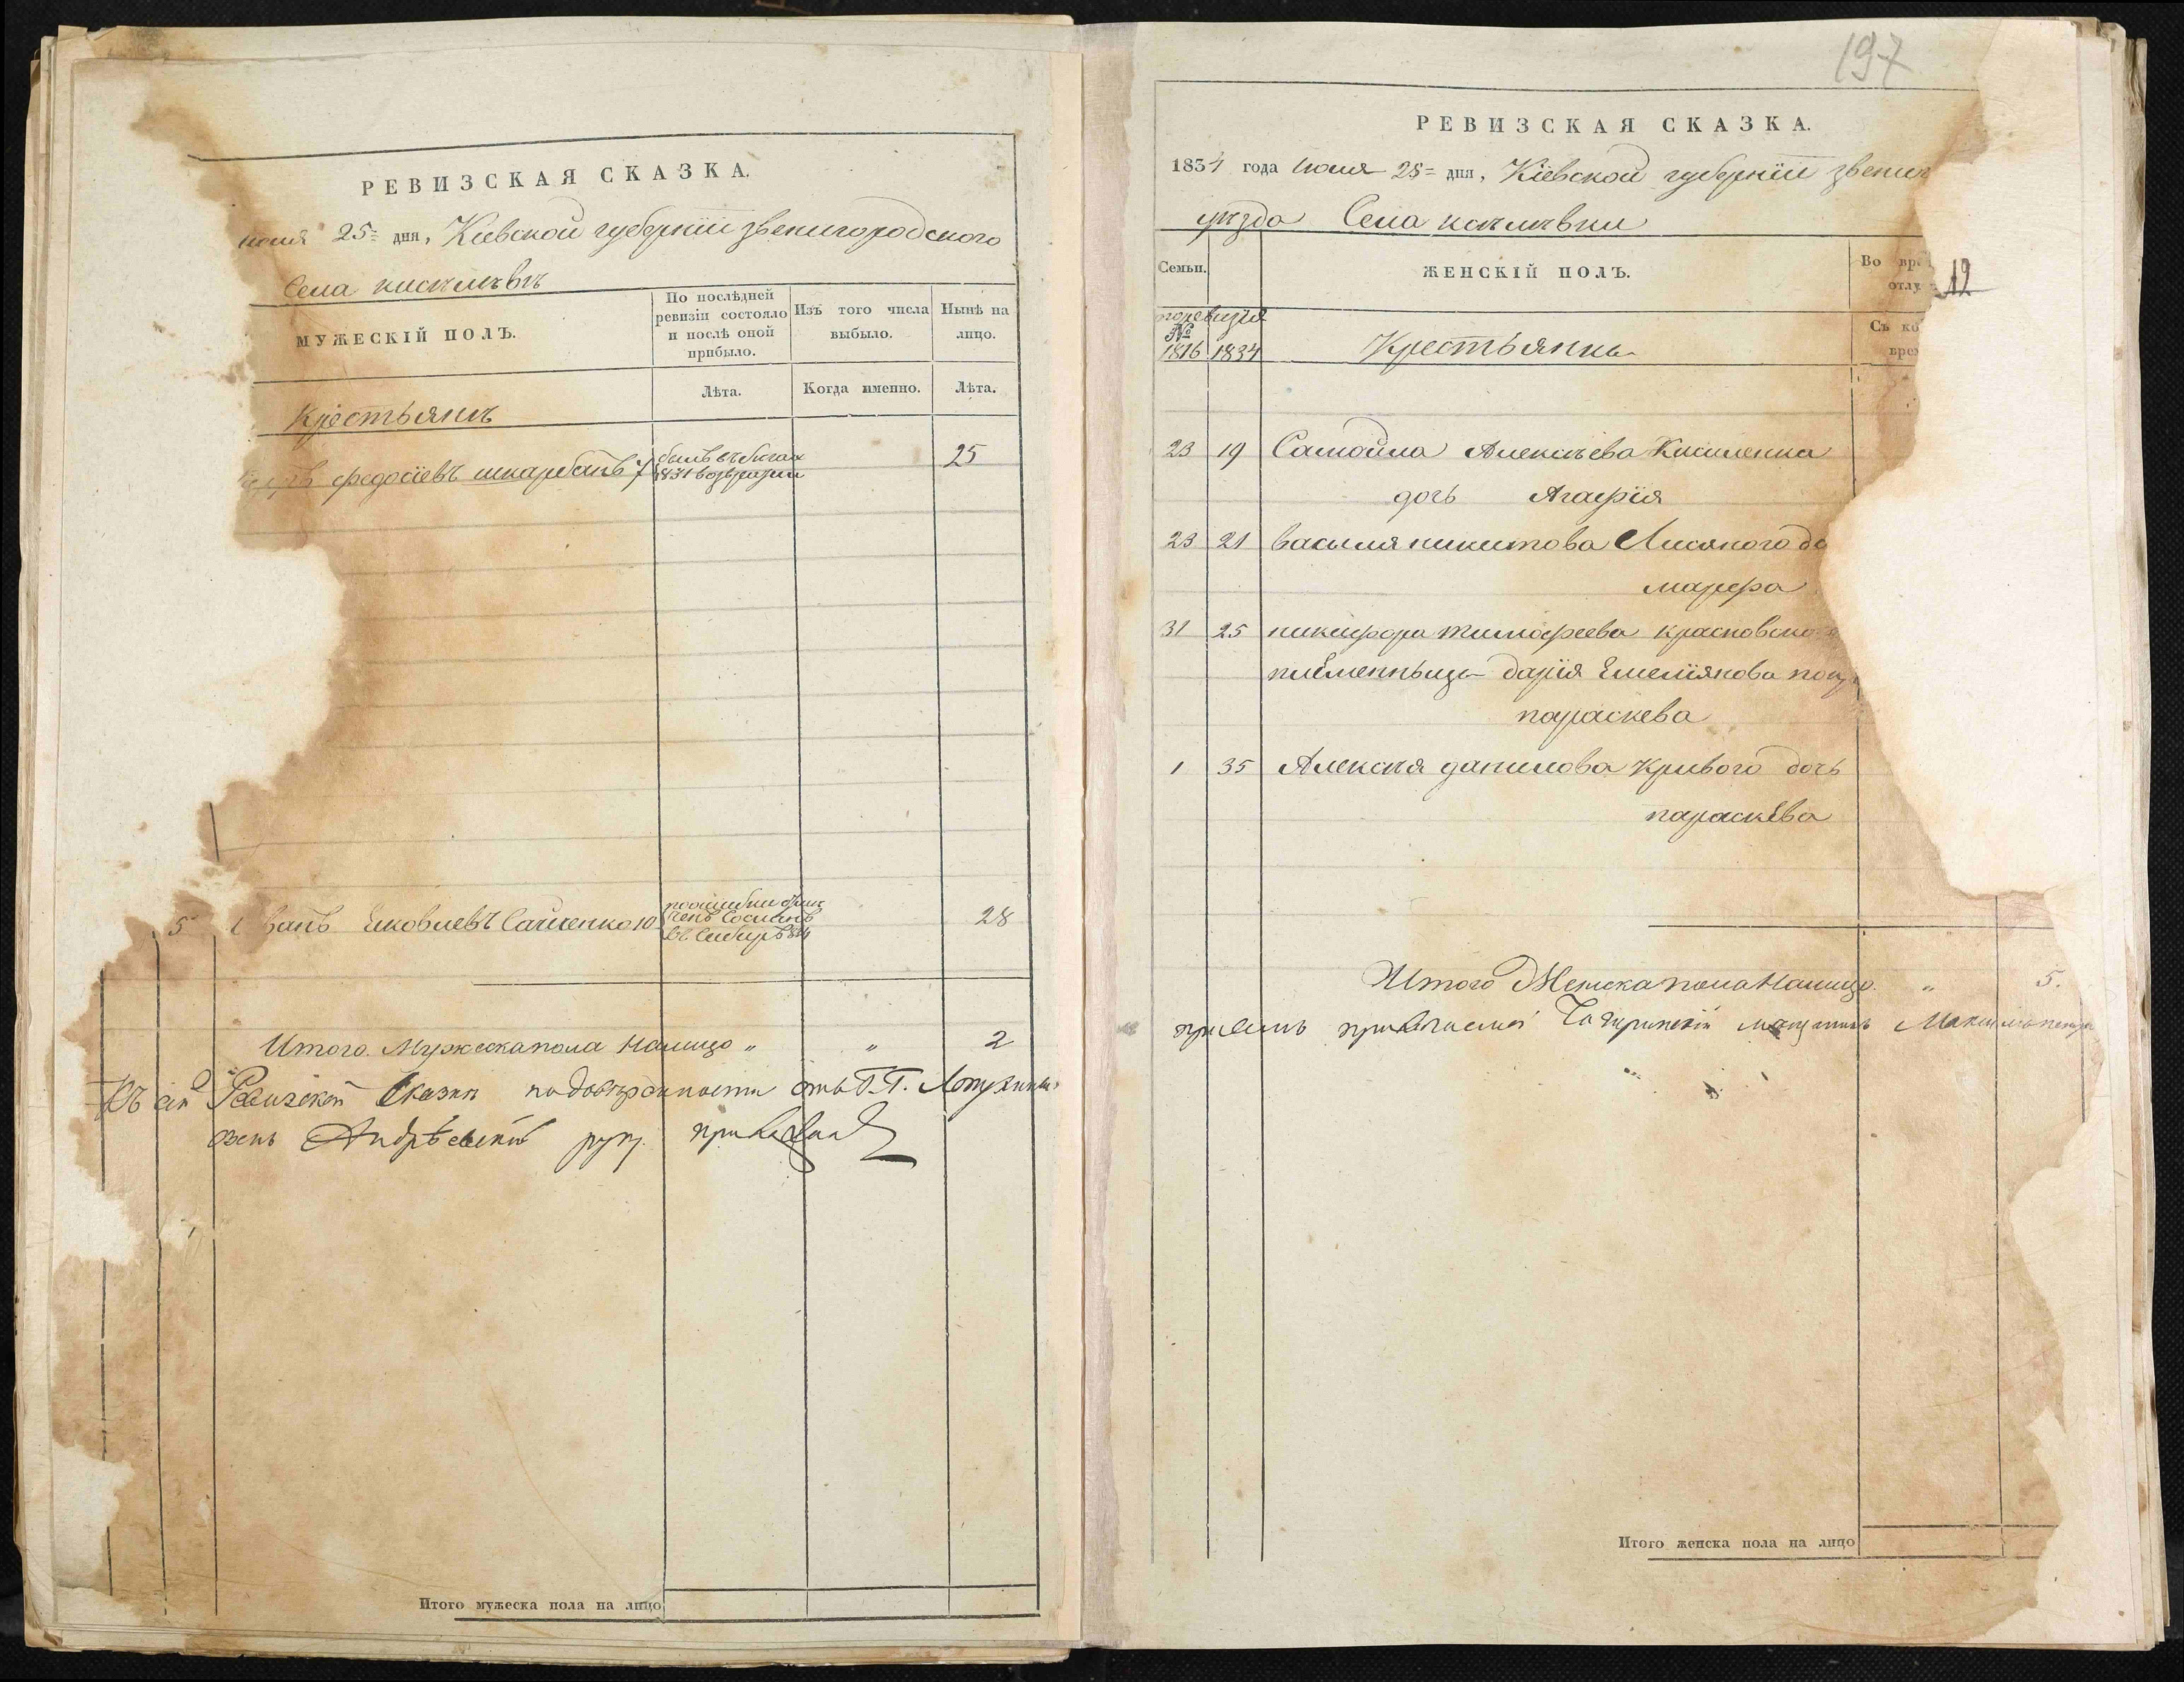 РЕВИЗСКАЯ СКАЗКА.
июля 25= дня, Кіевской губерніи звенигородского
Села кисѣлѣвкѣ
МУЖЕСКІЙ ПОЛЪ.
По послѣдней ревизіи состояло и послѣ оной прибыло.
Изъ того числа выбыло.
Нынѣ на лицо.
Лѣта.
Когда именно.
Лѣта.
Крестьянѣ
федосіевъ шкарбанъ 7
былъ въ бѣгах
1831 возвращен
25
5 Иванъ Яковлевъ Сайченко 10
по ошибки
сосланъ
въ Сибирѣ
28
Итого Мужеска пола Налицо " " 2
Къ сей Ревизской Сказки по доверенности отъ Г.Г. Лопухиныхъ
Андрѣевскій руку приложилъ
Итого мужеска пола на лицо
197
РЕВИЗСКАЯ СКАЗКА.
1834 года июля 25= дня, Кіевской губерніи звениг
уѣзда Села кисѣлѣвки
Семьи.
ЖЕНСКІЙ ПОЛЪ.
Во вре
отлу
12
по ревизіи
№
1816 1834
Крестьянки
Съ ко
врем
23 19 Самойла Алексѣева Киселенка
дочь Агафія
23 21 василя никитова Лисяного до
марфа
31 25 никифора тимофеева красновско
племенныцы дарія Емеліянова
параскева
1 35 Алексѣя данилова Кривого дочь
параскева
Итого Женска пола Налицо " 5.
Итого женска пола на лицо